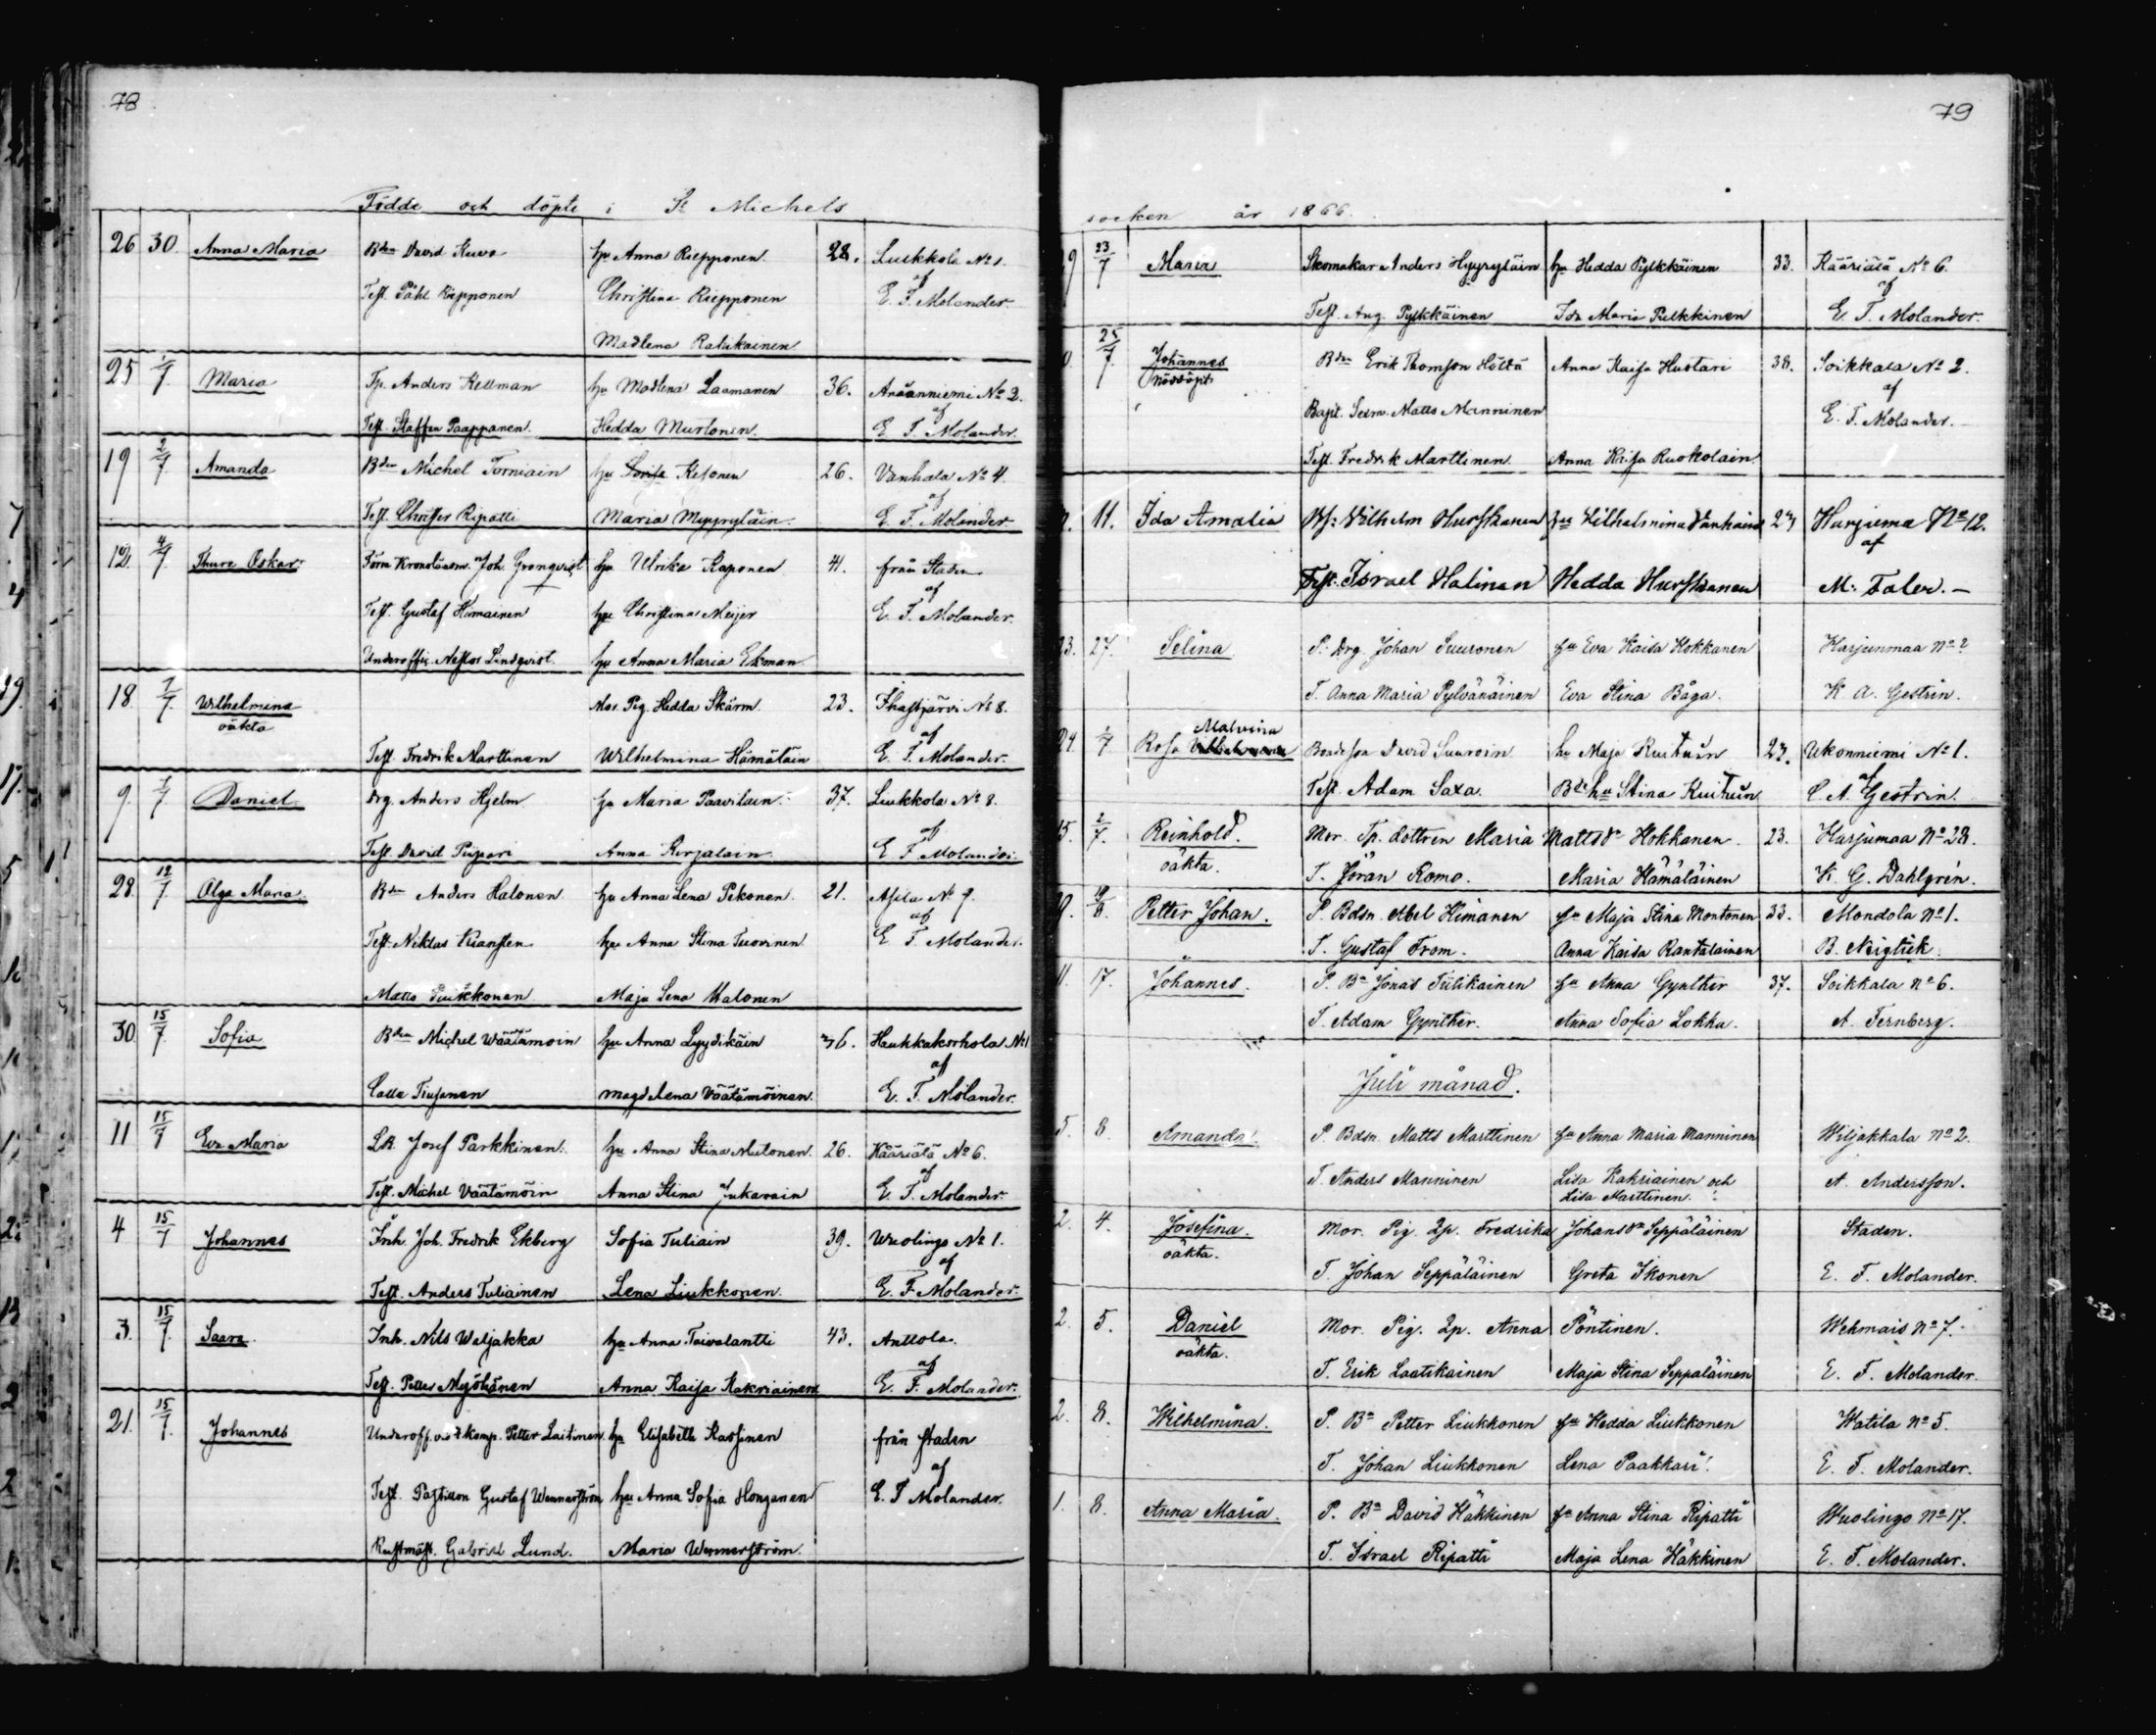 78
Födde och döpte i St Michels
26 30. Anna Maria Bdn David Kuvo hu Anna Riepponen 28. Luukkola No 1.
Test. Påhl Riepponen Christina Riepponen af E. F. Molander
Madlena Ratukainen
25 1/7 Maria Tp. Anders Kellman hu Madlena Laamanen 36. Anäänniemi No 2.
af
Test. Staffan Paappanen. Hedda Murtonen. E. F. Molander.
19 2/7 Amanda Bdn Michel Torniain hu Lovisa Kesonen 26. Vanhala No 4.
af
Test. Christer Ripatti Maria Myyryläin. E. F. Molander
12 4/7 Thure Oskar Joh. Grönqvist hu Ulrika Kaponen 41. från Staden
af
Test. Gustaf Himainen hu Christina Meijer E. F. Molander.
Underoffic. Nestor Lindqvist. hu Anna Maria Ekman
18 7/7 Wilhelmina Mor. Pig. Hedda Skärm. 23. Ihastjärvi No 8.
oäkta af
Test. Fredrik Marttinen Wilhelmina Hämäläin E. F. Molander.
9. 7/7 Daniel Drg. Anders Hjelm hu Maria Paavilain. 37. Liukkola No 8.
af
Test. David Pispari Anna Kirjalain E F Molander.
28 12/7 Olga Maria. Bdn Anders Halonen hu Anna Lena Pekonen. 21. Asila No 9.
af
Test. Niklas Kiansten hu Anna Stina Tuovinen E F Molander.
Matts Liukkonen Maja Lena Halonen
30 15/7 Sofia Bdn Michel Väätämoin hu Anna Lyydikäin 36. Haukkakorhola No 1
af
Calle Tiusanen Magdalena Väätämöinen. E. F. Molander.
11 15/7 Eva Maria Josef Parkkinen. hu Anna Stina Mutonen. 26. Kääriälä No 6.
af
Test. Michel Väätämöin Anna Stina Jukarain E. F. Molander
4 15/7 Johannes Inh. Joh. Fredrik Ekberg Sofia Tuliain 39. Wuolingo No 1.
af
Test. Anders Tuliainen Lena Liukkonen. E. F. Molander.
3. 15/7 Saara Inh. Nils Weijakka hu Anna Taivalantti 43. Anttola.
af
Test. Petter Myöhänen Anna Kaisa Kakriainen E. F. Molander.
21. 15/7 Johannes Underoff. vid komp. Petter Laitinen. hu Elisabeth Kassinen från staden
af
Test. Postillon Gustaf Wennerström hu Anna Sofia Honganen E. F Molander.
Rustmäst. Gabriel Lund. Maria Wennerström.
79
socken år 1866.
9 23/7 Maria Skomakar Anders Hyyryläin hu Hedda Pylkkäinen 33. Kääriälä No 6.
af
Test. Aug. Pylkkäinen Ida Maria Pulkkinen E. F. Molander.
0 25/7 Johannes Bdn Erik Thomsson Höltä Anna Kaisa Hustari 38. Soikkala No 2.
nöddöpt af
Bapt. Sexm. Matts Manninen E. F. Molander.
Test. Fredrik Marttinen Anna Kaisa Ruokolain
11. Ida Amalia Wilhelm Hurskanen hu Wilhelmina Vanhain 27 Harjuma No 12.
af
Test. Israel Halinen Hedda Hurskanen M. Faler. –
23. 27. Selina P. Drg. Johan Suuronen hu Eva Kaisa Kokkanen Harjunmaa no ?
T. Anna Maria Pylvänäinen Eva Stina Båga. K A. Gestrin.
Malvina
24. 2/7 Rosa Wilhelmina Bondeson David Suuroin hu Maja Kuituin 23. Ukonniemi No 1.
af
Test. Adam Saxa. Bde hu Stina Kuituin C. A. Gestrin.
25. 2/7. Reinhold. Mor. Tp. dottren Maria Mattsdr Hokkanen. 23. Harjumaa No 28.
oäkta. T. Jöran Romo. Maria Hämäläinen K. G. Dahlgrén.
19/8. Petter Johan. P. Bdsn. Abel Himanen hu Maja Stina Montonen 33. Mondola No 1.
T. Gustaf From. Anna Kaisa Rantalainen B. Neiglick.
11. 17. Johannes. P. Bn Jonas Tiilikainen hu Anna Gynther 37. Soikkala no 6.
T. Adam Gynther. Anna Sofia Lokka. A. Fernberg.
Juli månad.
5. 8. Amanda. P. Bdsn. Matts Marttinen hu Anna Maria Manninen Wiljakkala no 2.
T. Anders Manninen Lisa Kakriainen och A. Andersson.
Lisa Marttinen.
2. 4. Josefina. Mor. Pig. Lp. Fredrika Johansdr Seppäläinen Staden.
oäkta. T. Johan Seppäläinen Greta Ikonen E. F. Molander.
2. 5. Daniel Mor. Pig. Lp. Anna Pöntinen. Wehmais no 7.
oäkta. T. Erik Laatikainen Maja Stina Seppäläinen E. F. Molander.
2. 8. Wilhelmina. P. Bn Petter Liukkonen hu Hedda Liukkonen Watila no 5.
T. Johan Liukkonen Lena Paakkari. E. F. Molander.
1. 8. Anna Maria. P. Bn David Häkkinen hu Anna Stina Ripatti Wuolingo no 17.
T. Israel Ripatti Maja Lena Häkkinen E. F. Molander.